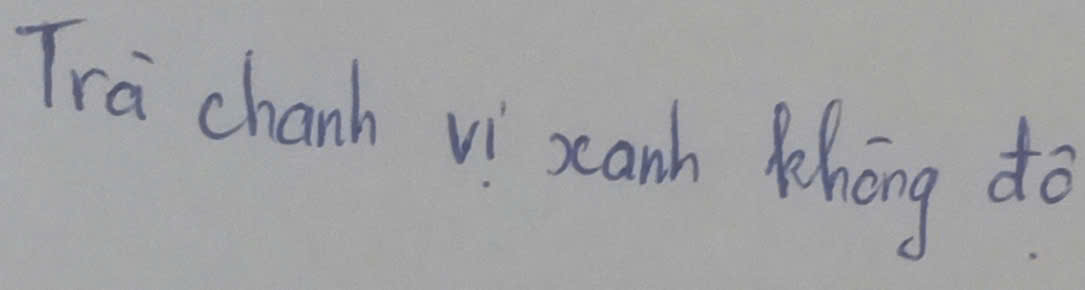 Trà chanh vị xanh không độ